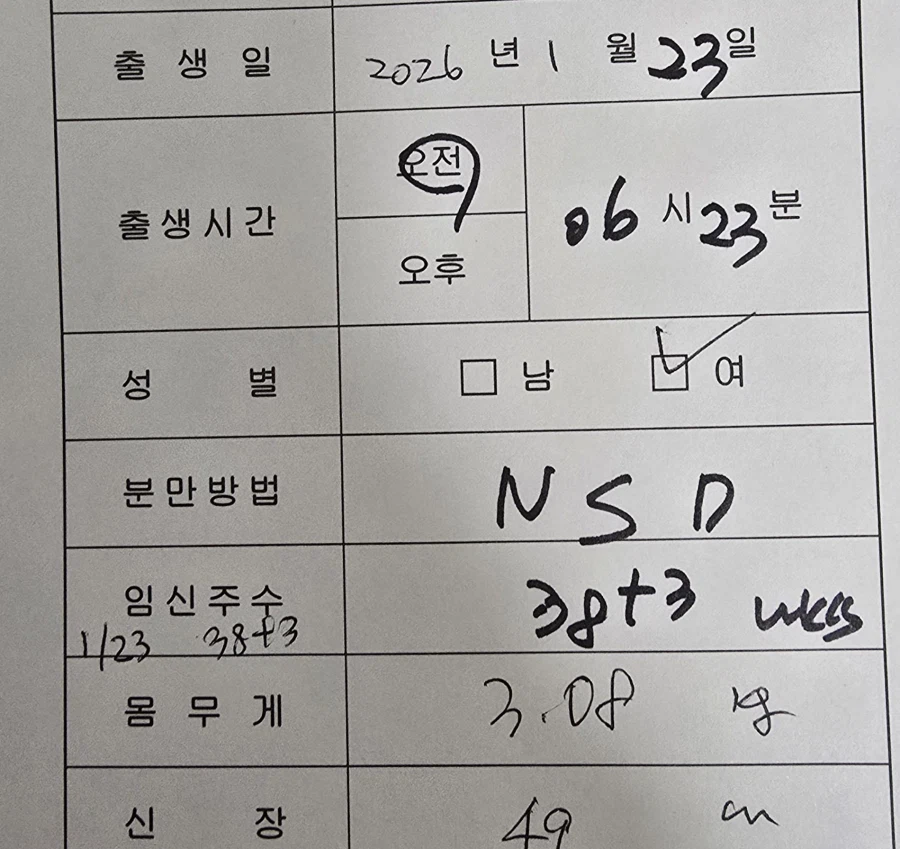 출 생 일 2026 년 1 월 23 일
출생시간 오전 06 시 23 분
오후
성 별 □ 남 ☑ 여
분만방법 N S D
임신주수 38+3 wks
1/23 38+3
몸 무 게 3.08 kg
신 장 49 cm